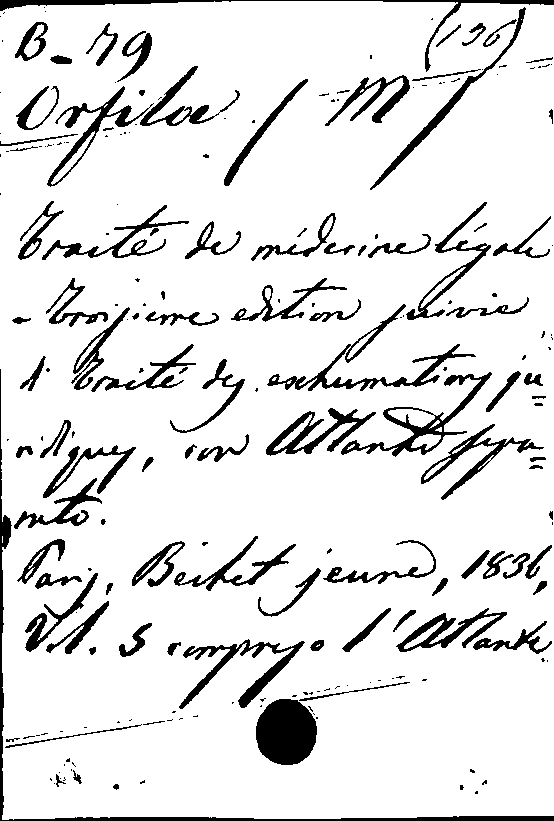 B-79 (136)
Orfila / M /
Traité de médecine légale
- Troisième edition suivie
d' Traité des exhumations ju=
ridiques, con Atlante sepa=
rato.
Paris, Béchet jeune, 1836,
Vol. 5 compreso l'Atlante